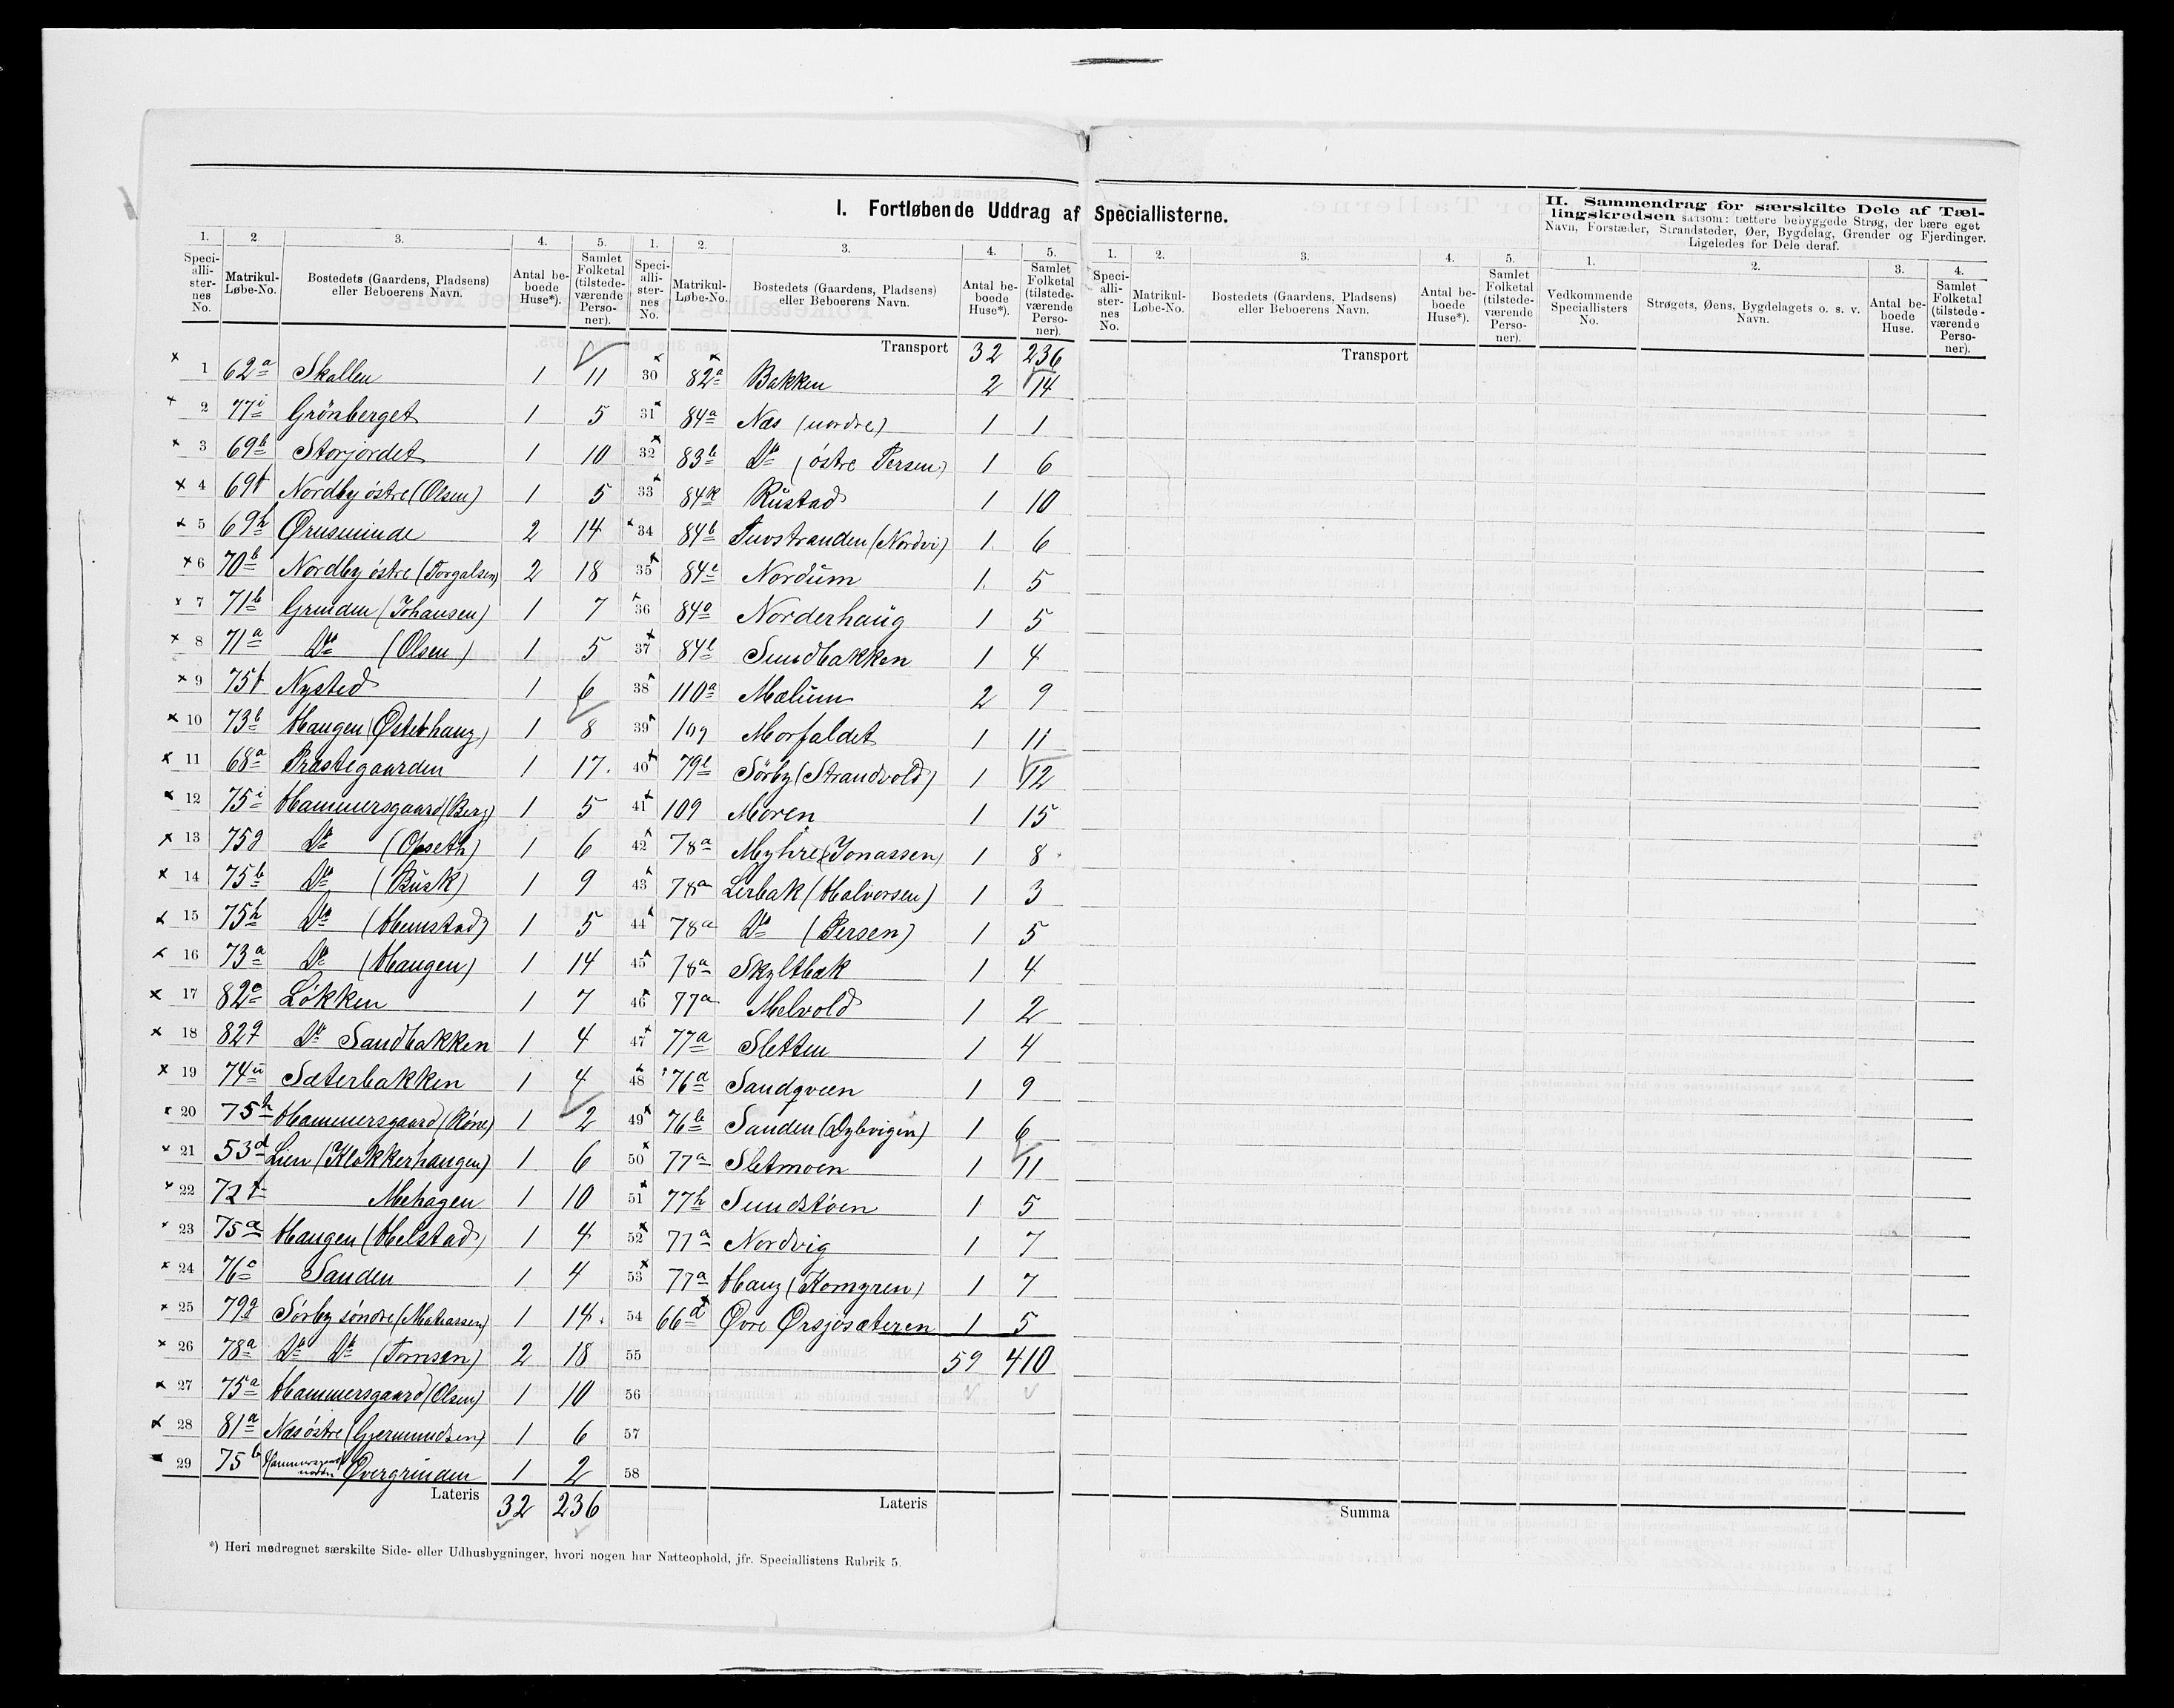 I. Fortløbende Uddrag af Speciallisterne.
1. 2 3. 4. 5.
Speciallisternes No. Matrikul-Løbe-No. Bostedets (Gaardens, Pladsens) eller Beboerens Navn. Antal beboede Huse*). Samlet Folketal (tilstedeværende Personer).
1 62a Skallen 1 11
2 77i Grönberget 1 5
3 69b Storjordet 1 10
4 69f Nordby östre (Olsen) 1 5
5 69h Ørnsminde 2 14
6 70b Nordby östre (Torgalsen) 2 18
7 71b Grinden (Johansen) 1 7
8 71a Do (Olsen) 1 5
9 75f Nysted 1 6
10 73b Haugen (Østerhaug) 1 8
11 68a Præstegaarden 1 17.
12 75i Hammersgaard (Berg) 1 5
13 75g Do (Opseth) 1 6
14 75b Do (Busk) 1 9
15 75h Do (Hemstad) 1 5
16 73a Do (Haugen) 1 14
17 82e Lökken 1 7
18 82q Do Sandbakken 1 4
19 74u Sæterbakken 1 4
20 75h Hammersgaard (Röne) 1 2
21 53d Lien (Klokkerhaugen) 1 6
22 72 Mehagen 1 10
23 75a Haugen (Helstad) 1 4
24 76c Sanden 1 4
25 79g Sörby söndre (Mathiassen) 1 14.
26 78a Do Do (Tomsen) 2 18
27 75a Hammersgaard (Olsen) 1 10
28 81a Næs östre (Gjermundsen) 1 6
29 75b Hammersgaard nordre Øvergrinden 1 2
Lateris 32 236
1. 2. 3. 4. 5.
Speciallisternes No. Matrikul-Løbe-No. Bostedets (Gaardens, Pladsens) eller Beboerens Navn. Antal beboede Huse*). Samlet Folketal (tilstedeværende Personer).
Transport 32 236
30 82a Bakken 2 14
31 84a Næs (nordre) 1 1
32 83b Do (östre Persen) 1 6
33 84k Rustad 1 10
34 84b Tuvstranden (Nordvi) 1. 6
35 84e Nordum 1. 5
36 84o Norderhaug 1 5
37 84l Sundbakken 1 4
38 110a Mælum 2 9
39 109 Morfaldet 1 11
40 79l Sörby (Strandvold) 1 12
41 109 Moren 1 15
42 78a Myhre (Jonassen) 1 8
43 78a Lerbak (Halvorsen) 1 3
44 78a Do (Persen) 1 5
45 78a Skyltbæk 1 4
46 77a Melvold 1 2
47 77a Sletten 1 4
48 76a Sandqveen 1 9
49 76b Sanden (Dybvigen) 1 6
50 77a Sletmoen 1 11
51 77h Sundstöen 1 5
52 77a Nordvig 1 7
53 77a Haug (Komgren) 1 7
54 66d Øvre Ørsjösæteren 1 5
55 59 410
56
57
58
Lateris
1. 2. 3. 4. 5.
Speciallisternes No. Matrikul-Løbe-No. Bostedets (Gaardens, Pladsens) eller Beboerens Navn. Antal beboede Huse*). Samlet Folketal (tilstedeværende Personer).
Transport
Summa
II. Sammendrag for særskilte Dele af Tællingskredsen saasom: tættere bebyggede Strøg, der bære eget Navn, Forstæder, Strandsteder, Øer, Bygdelag, Grender og Fjerdinger. Ligeledes for Dele deraf.
1. 2. 3. 4.
Vedkommende Speciallisters No. Strøgets, Øens, Bygdelagets o. s. v. Navn. Antal beboede Huse. Samlet Folketal (tilstedeværende Personer).
*) Heri medregnet særskilte Side- eller Udhusbygninger, hvori nogen har Natteophold, jfr. Speciallistens Rubrik 5.